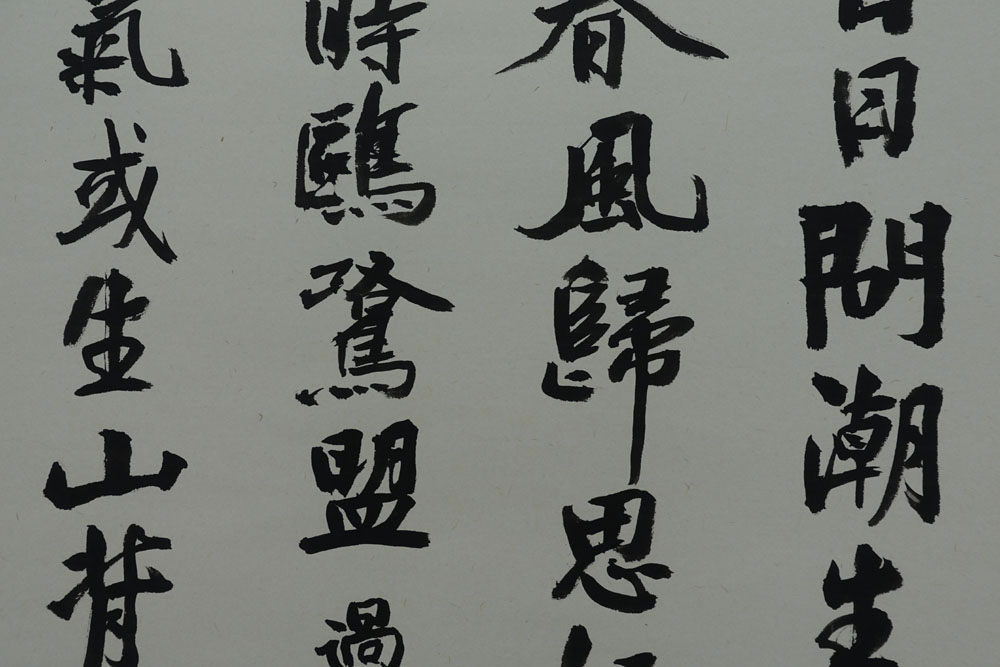 日問潮生
春風歸思
時鷗鷺盟過
氣或生山背